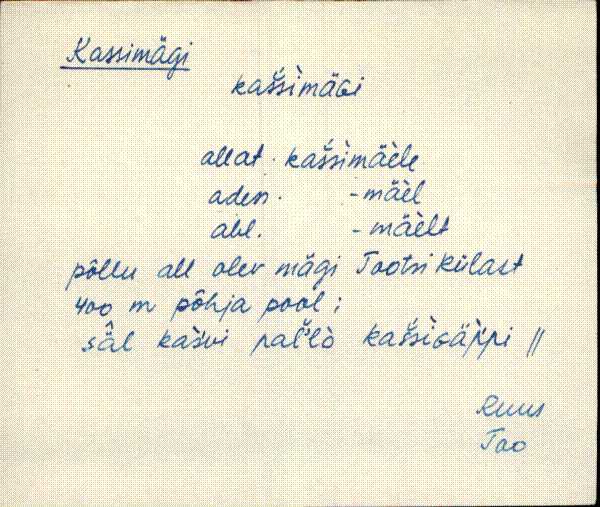 Kassimägi
kaśśìmäGi
allat. kaśśìmäèle
adess. -mäèl
abl. -mäèlt
põllu all olev mägi Tootsi külast
400 m põhja pool;
sä̂l kaśvi paĺ̀lò kaśśìGäṕpi ||
Ruus
Tao